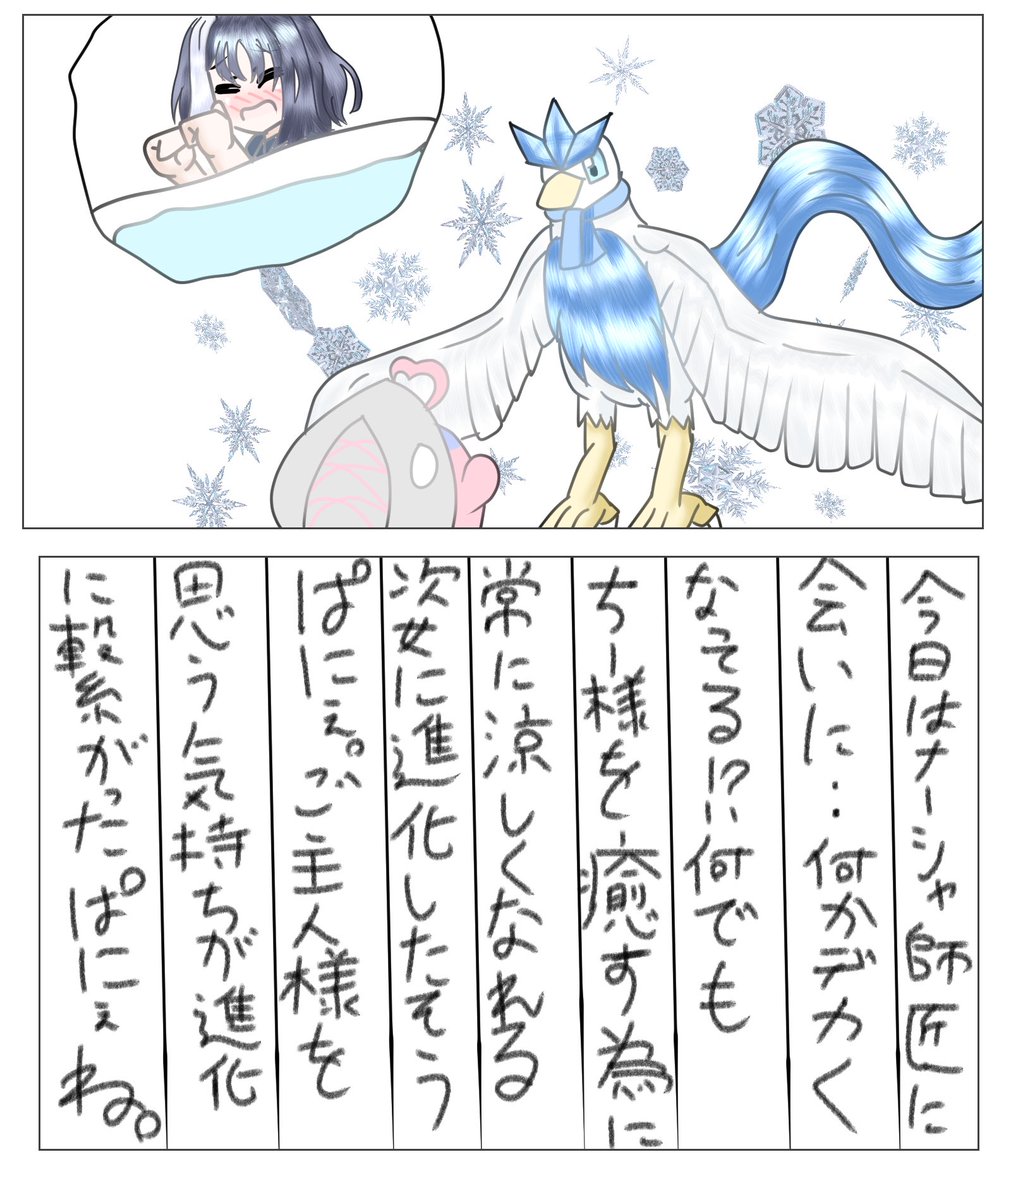 今日はナーシャ師匠に
会いに…何かデカく
なってる!?何でも
ちー様を癒す為に
常に涼しくなれる
次女に進化したそう
ぱにぇ。ご主人様を
思う気持ちが進化
に繋がったぱにぇ
ね。